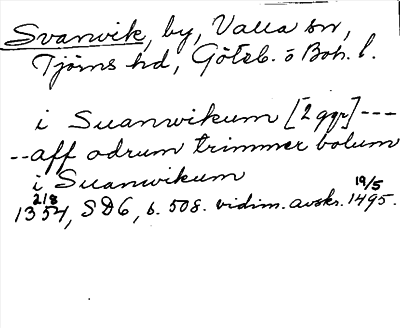 Svanvik, by, Valla sn,
Tjörns hd, Göteb. o Boh. l.
i Suanwikum [2 ggr] ---
--aff adrum trimmer bolum
i Suanwikum
2/8 1354, SD6, s. 508. vidim. avskr. 19/5 1495.